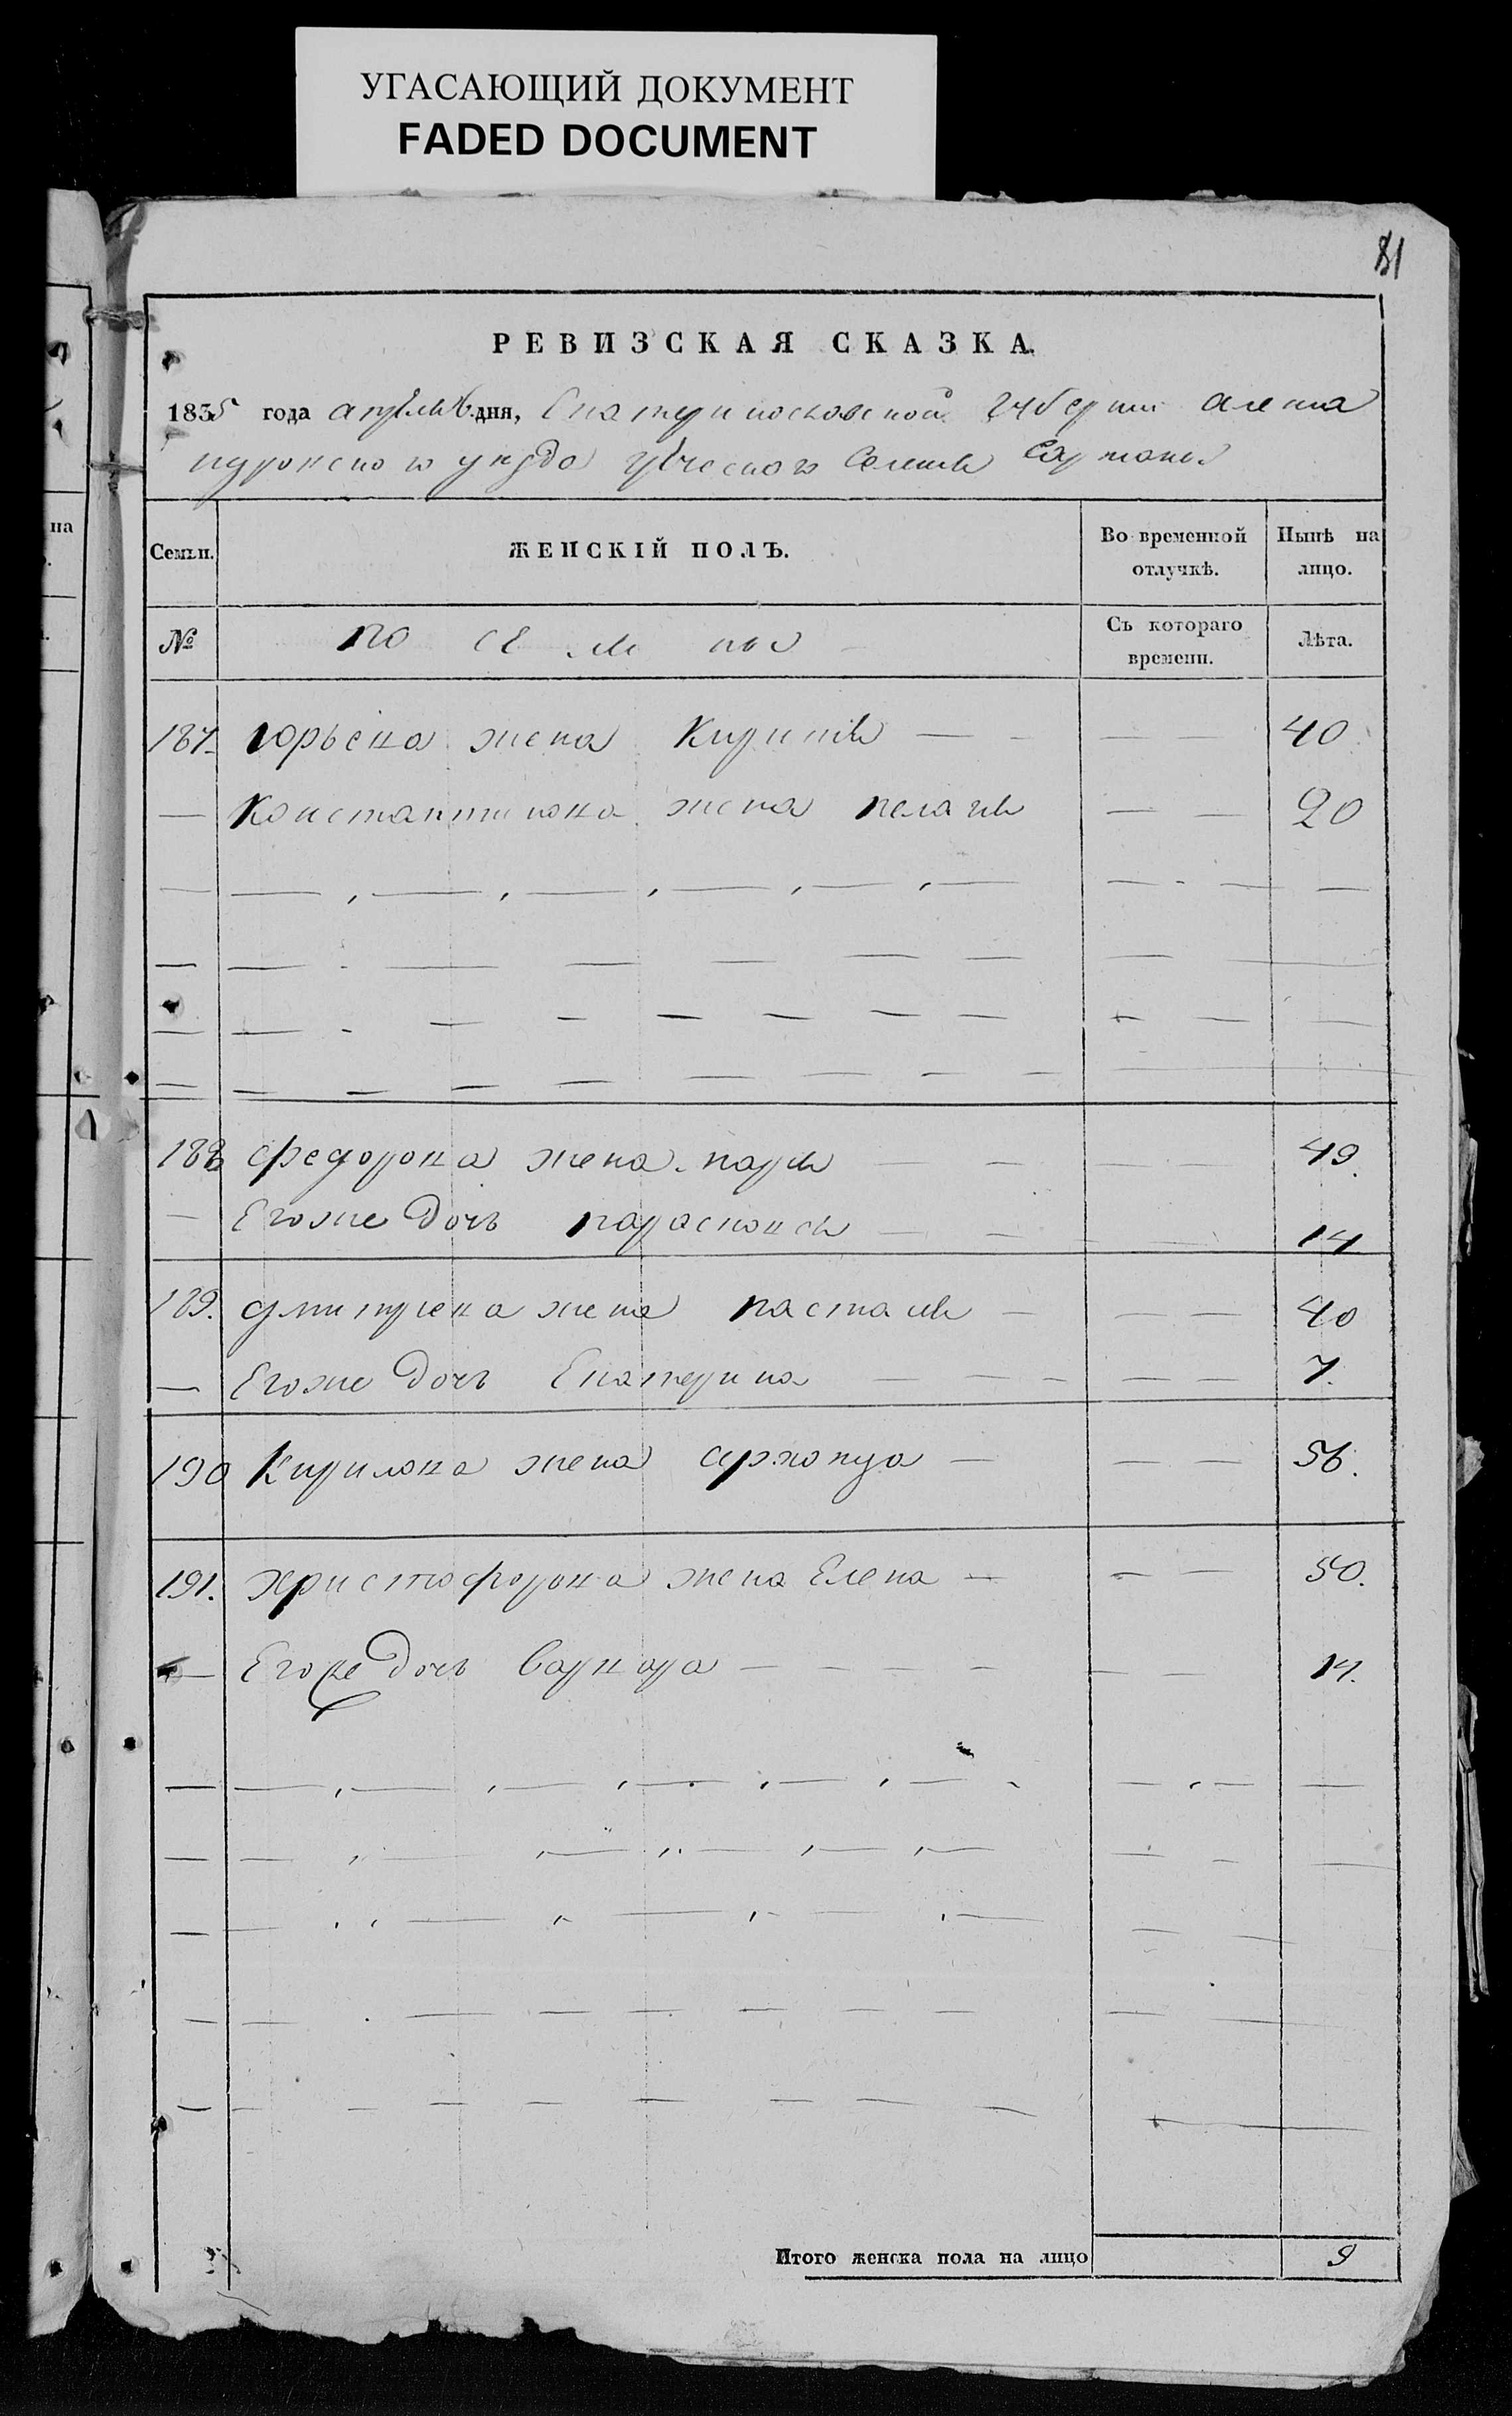 УГАСАЮЩИЙ ДОКУМЕНТ
FADED DOCUMENT
81
РЕВИЗСКАЯ СКАЗКА.
1835 года апреля дня, Екатеринославской губернии Алекса
ндровского уезда греческого Селения
на
Семьи. ЖЕНСКІЙ ПОЛЪ. Во временной отлучкѣ. Нынѣ на лицо.
№ Съ котораго времени. Лѣта.
187. Юрьева жена Кирикия — — — — 40
— Константинова жена пелагия — — 20
188 Федорова жена мария — — — — 49.
— Егоже дочь парасковея — — — — 14
189. дмитриева жена настасия — — — 40
— Егоже дочь Екатерина — — — — — 7.
190 Кирилова жена — — — 56.
191. христофорова жена Елена — — — 50.
— Егоже дочь варвара — — — — — — 14.
Итого женска пола на лицо 9